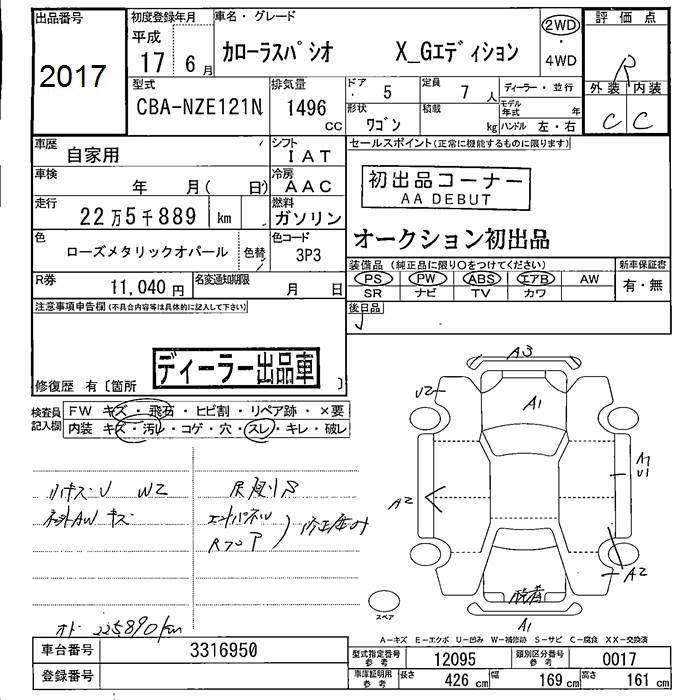 出品番号
2017
初度登録年月
平成
17 6月
車名・グレード
カローラスパシオ X_Gエディション
2WD
・
4WD
評価点
R
外装 内装
C C
型式
CBA-NZE121N
排気量
1496
cc
ドア
5
定員
7 人
形状
ワゴン
積載
kg
ディーラー・並行
モデル年式 年
ハンドル 左・右
車歴
自家用
シフト
IAT
車検
年 月( 日)
冷房
AAC
走行
22万5千889 km
燃料
ガソリン
色
ローズメタリックオパール
色替
色コード
3P3
R券
11,040円
名変通知期限
月 日
セールスポイント(正常に機能するものに限ります)
初出品コーナー
AA DEBUT
オークション初出品
装備品(純正品に限り○をつけてください)
PS PW ABS エアB AW
SR ナビ TV カワ
新車保証書
有・無
後日品
注意事項申告欄(不具合内容等は具体的に記入して下さい)
ディーラー出品車
修復歴 有〔箇所 〕
検査員
記入欄
FW キズ・飛石・ヒビ割・リペア跡・×要
内装 キズ・汚レ・コゲ・穴・スレ・キレ・破レ
リキズ・U W2
AWキズ
エンドパネル
Rフロア
オド 225890km
A3
U2
A1
A2
A1
U1
A2
A1
スペア
A−キズ E−エクボ U−凹み W−補修跡 S−サビ C−腐食 XX−交換済
車台番号
3316950
登録番号
型式指定番号
参考
12095
類別区分番号
参考
0017
車庫証明用
参考
長さ 426 cm 幅 169 cm 高さ 161 cm